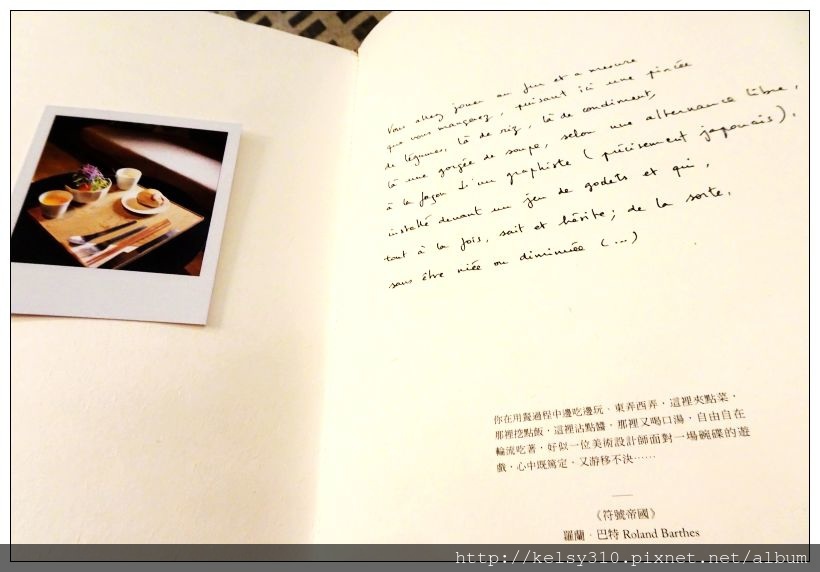 Vous allez jouer au fur et à mesure
que vous mangerez, puisant ici une pincée
de légumes, là de riz, là de condiment,
là une gorgée de soupe, selon une alternance libre,
à la façon d'un graphiste (précisement japonais),
installé devant un jeu de godets et qui,
tout à la fois, sait et hésite; de la sorte,
sans être niée ou diminuée (...)
你在用餐過程中邊吃邊玩，東弄西弄，這裡夾點菜，
那裡挖點飯，這裡沾點醬，那裡又喝口湯，自由自在
輪流吃著，好似一位美術設計師面對一場碗碟的遊
戲，心中既篤定，又游移不決⋯⋯
《符號帝國》
羅蘭．巴特 Roland Barthes
http://kelsy310.pixnet.net/album